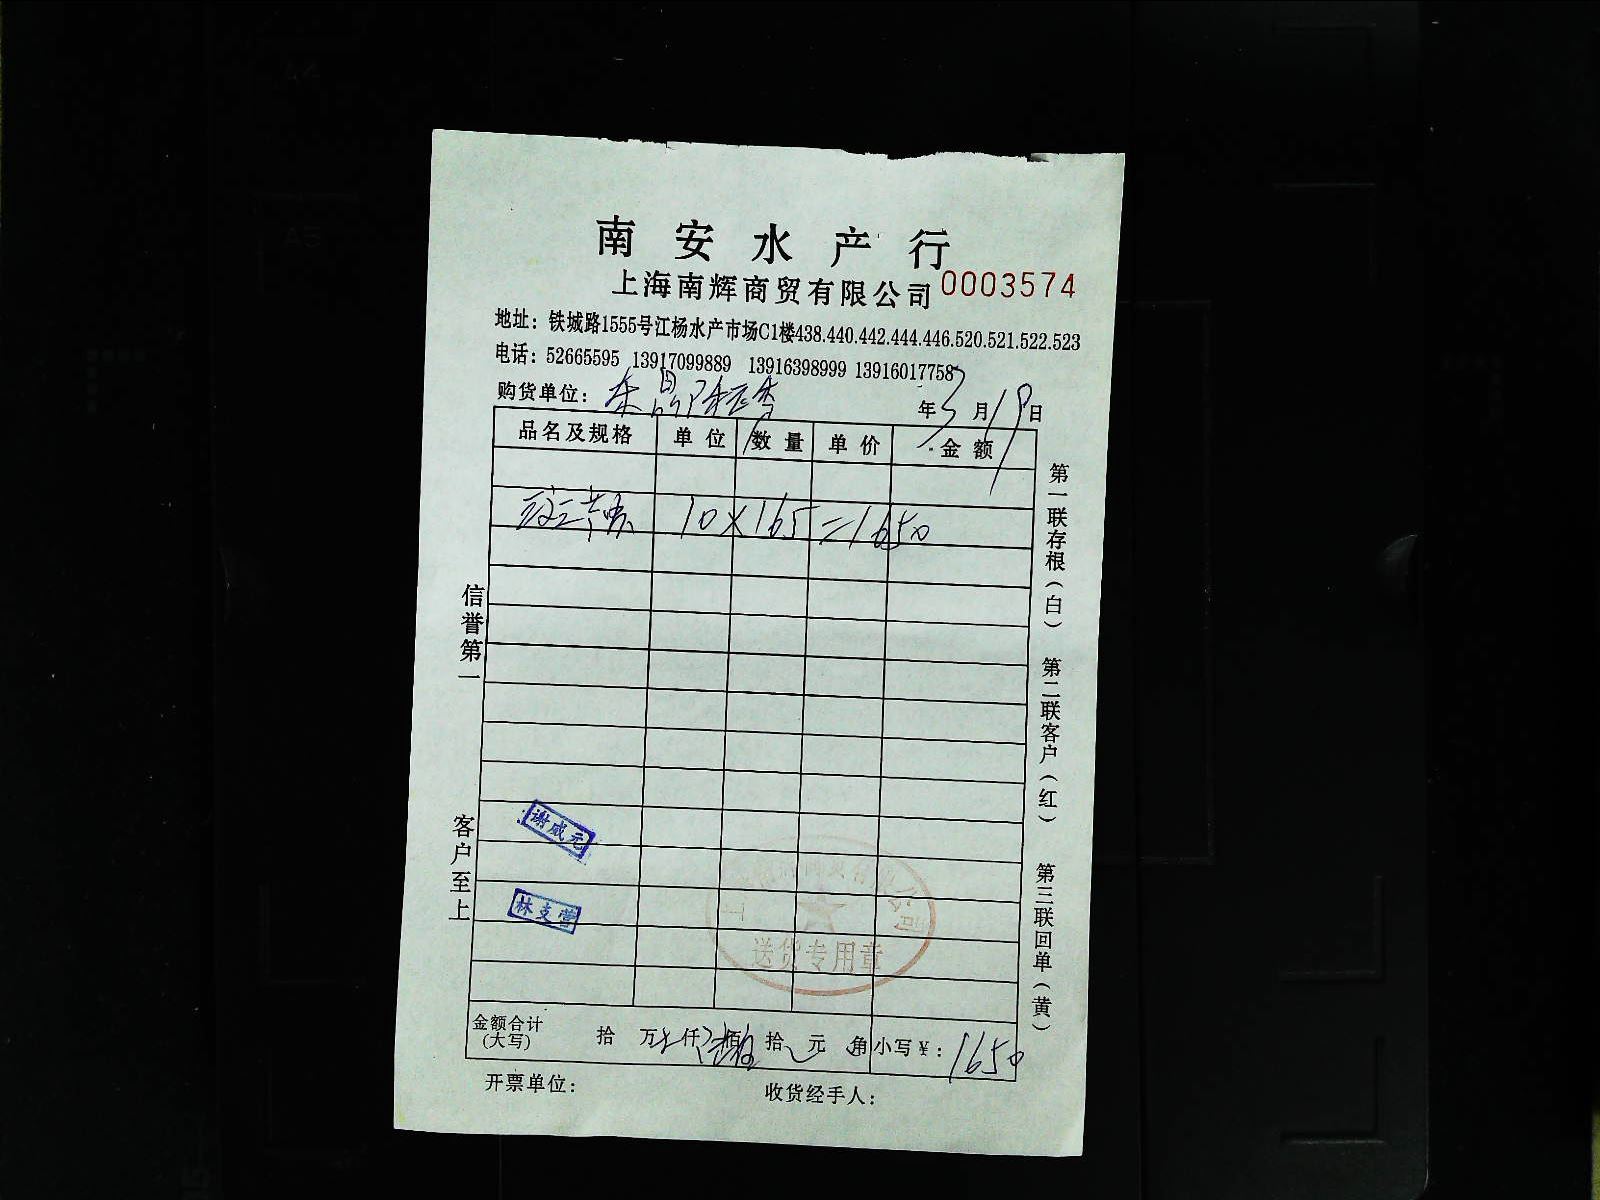 南安水产行
上海南辉商贸有限公司 0003574
地址：铁城路1555号江杨水产市场C1楼438.440.442.444.446.520.521.522.523
电话：52665595 13917099889 13916398999 13916017758
购货单位： 年3月19日
品名及规格 单位 数量 单价 金额
10×165=1650
信誉第一
客户至上
第一联存根（白）
第二联客户（红）
第三联回单（黄）
谢咸元
林支营
送货专用章
金额合计 拾 万 仟 佰 拾 元 角 小写¥：1650
(大写)
开票单位： 收货经手人：